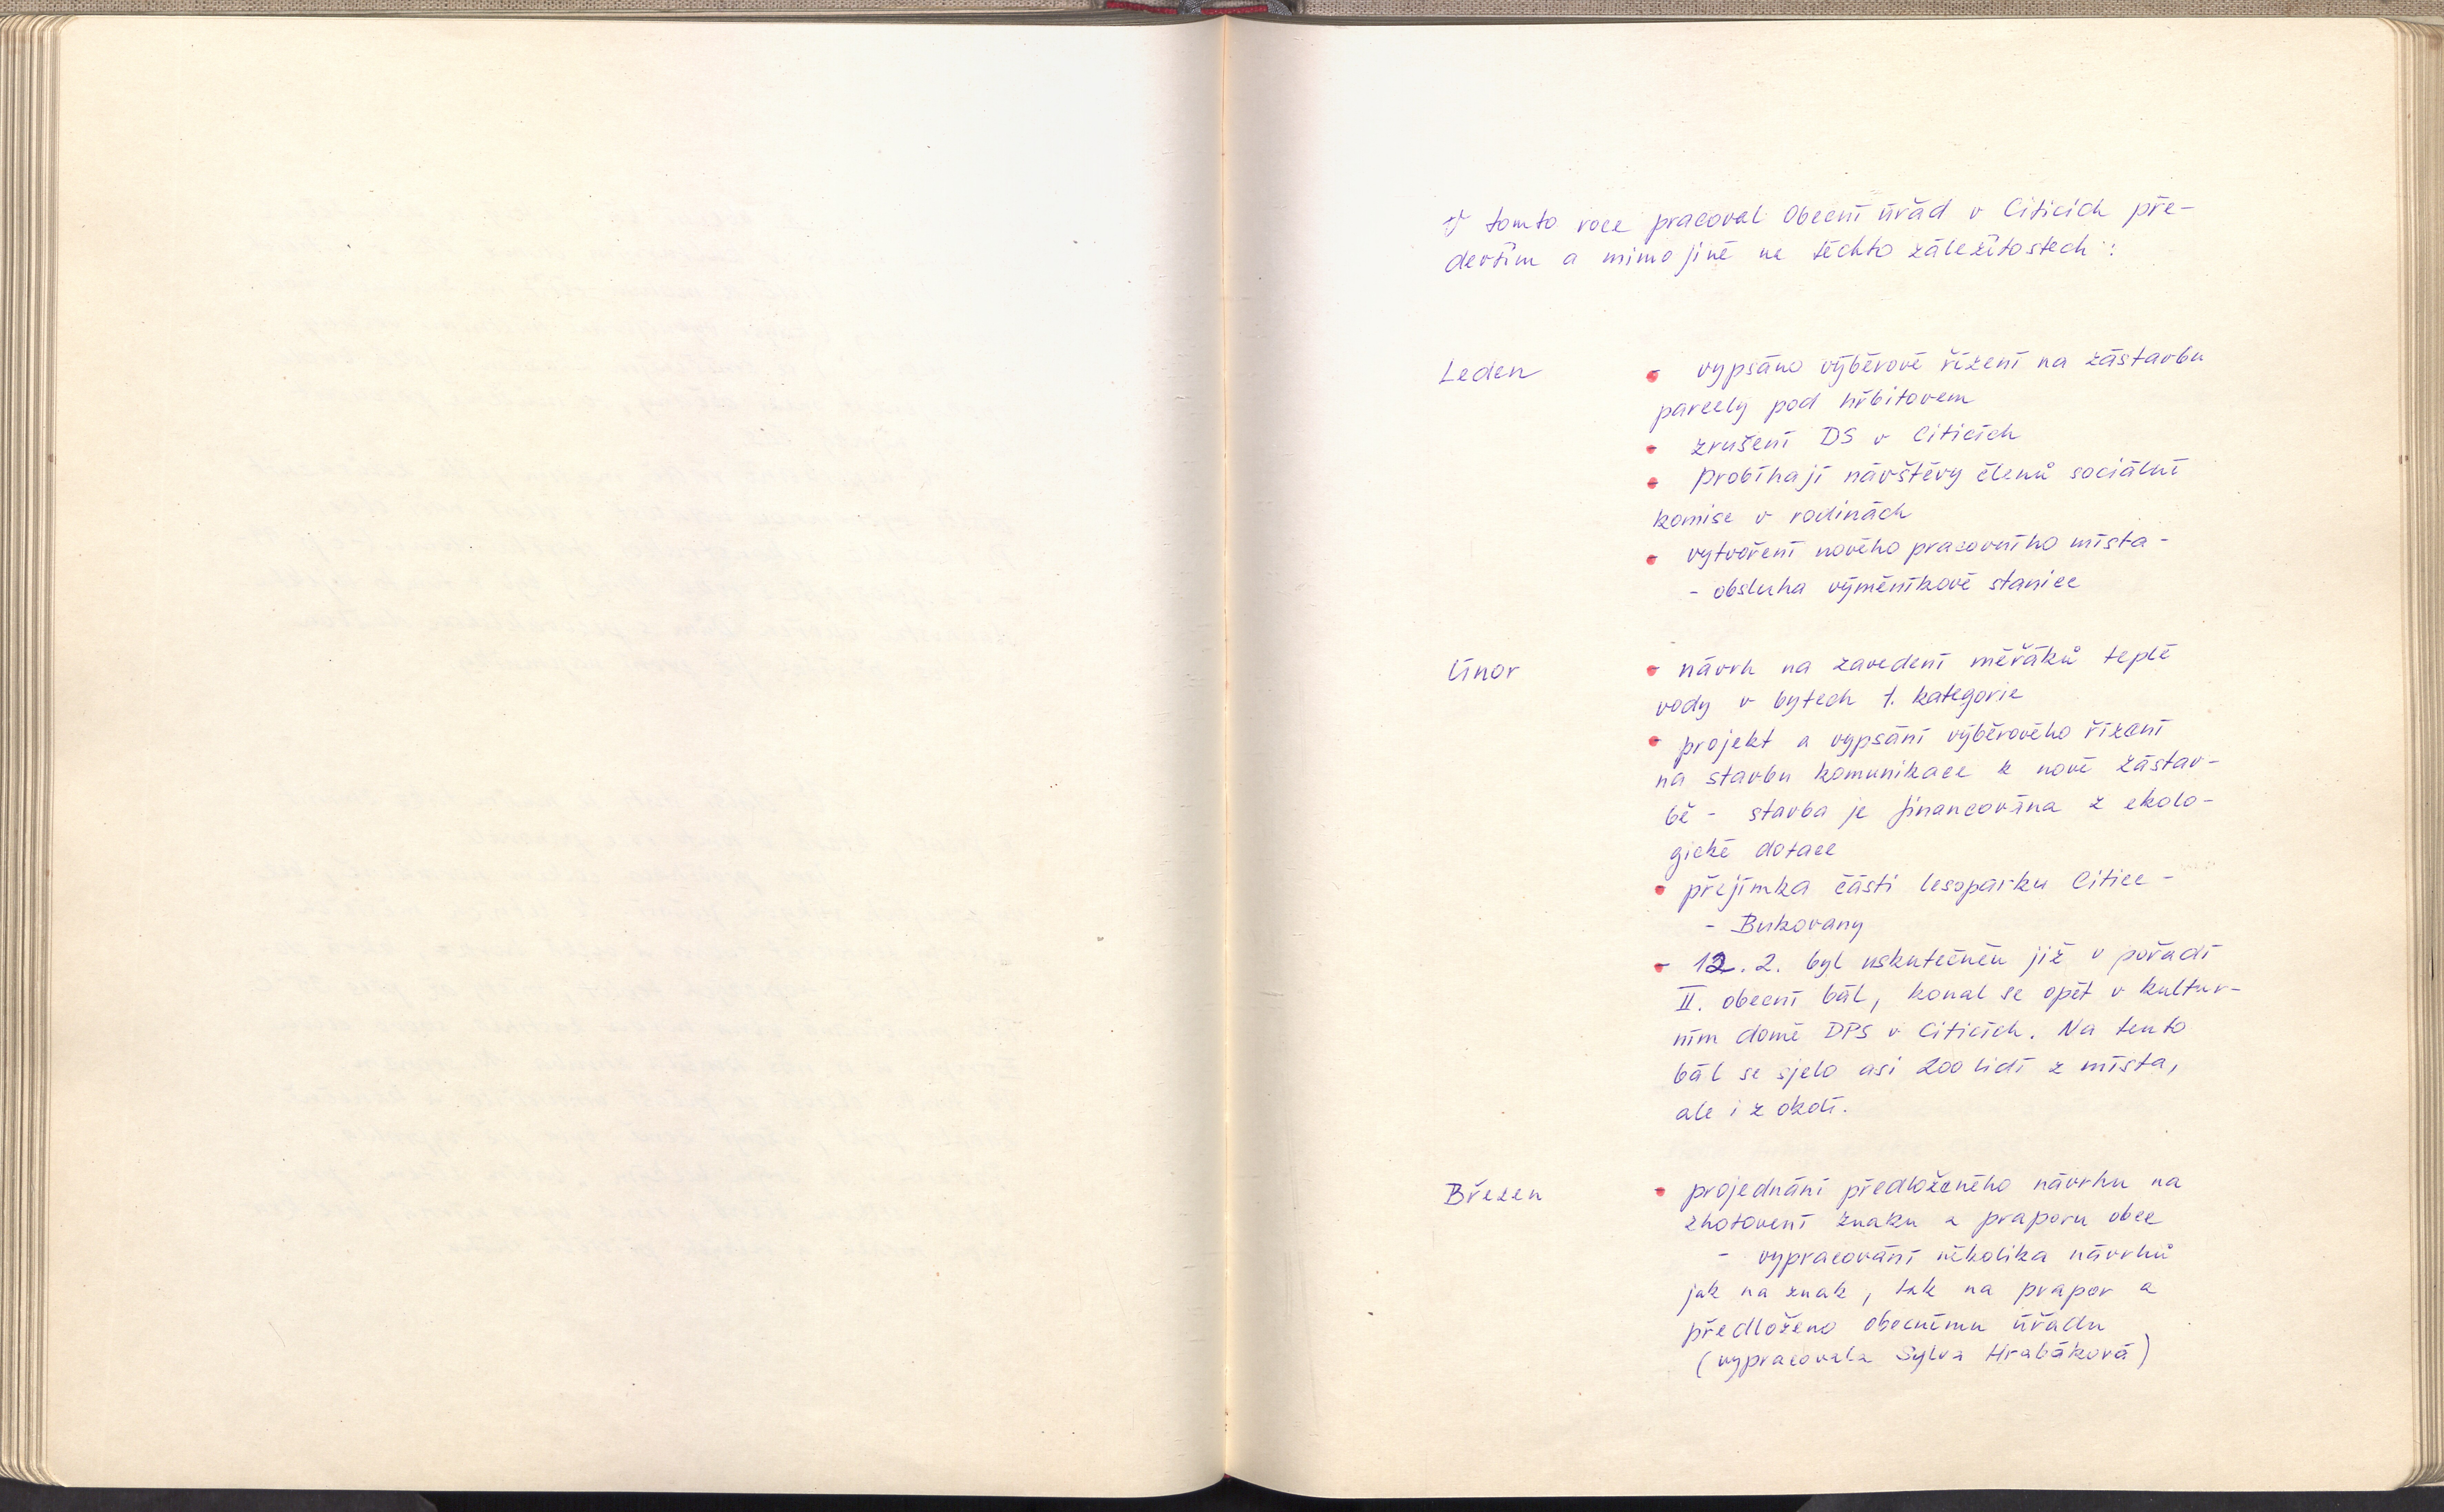 V tomto roce pracoval Obecní úřad v Citicích pře-
devším a mimo jiné na těchto záležitostech:
Leden
- vypsáno výběrové řízení na zástavbu
parcely pod hřbitovem
- zrušení DS v Citicích
- Probíhají návštěvy členů sociální
komise v rodinách
- vytvoření nového pracovního místa -
- obsluha výměníkové stanice
Únor
- návrh na zavedení měřáků teplé
vody v bytech 1. kategorie
- projekt a vypsání výběrového řízení
na stavbu komunikace k nové zástav-
bě - stavba je financována z ekolo-
gické dotace
- přejímka části lesoparku Citice -
- Bukovany
- 12. 2. byl uskutečněn již v pořadí
II. obecní bál, konal se opět v kultur-
ním domě DPS v Citicích. Na tento
bál se sjelo asi 200 lidí z místa,
ale i z okolí.
Březen
- projednání předloženého návrhu na
zhotovení znaku a praporu obce
- vypracování několika návrhů
jak na znak, tak na prapor a
předloženo obecnímu úřadu
(vypracovala Sylva Hrabáková)